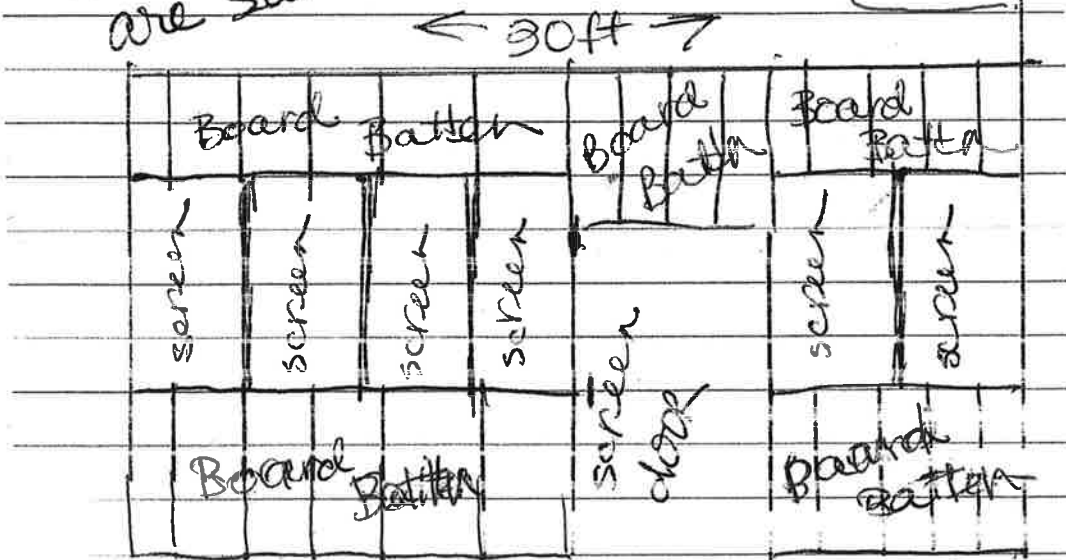 are
← 30ft →
Board Batten
Board Battn
Board Battn
screen
screen
screen
screen
screen door
screen
screen
Board Batten
Board Batten